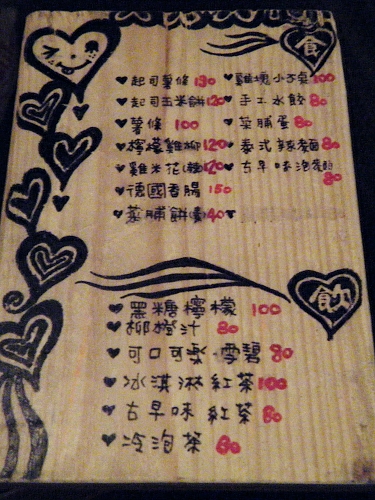 食
起司薯條 130
起司玉米餅 120
薯條 100
檸檬雞柳 120
雞米花
德國香腸 150
菜脯餅 40
雞塊小百桌 100
手工水餃 80
菜脯蛋 80
泰式辣麵 80
古早味泡麵 80
飲
黑糖檸檬 100
柳橙汁 80
可口可樂 雪碧 80
冰淇淋紅茶 100
古早味紅茶 80
冷泡茶 80